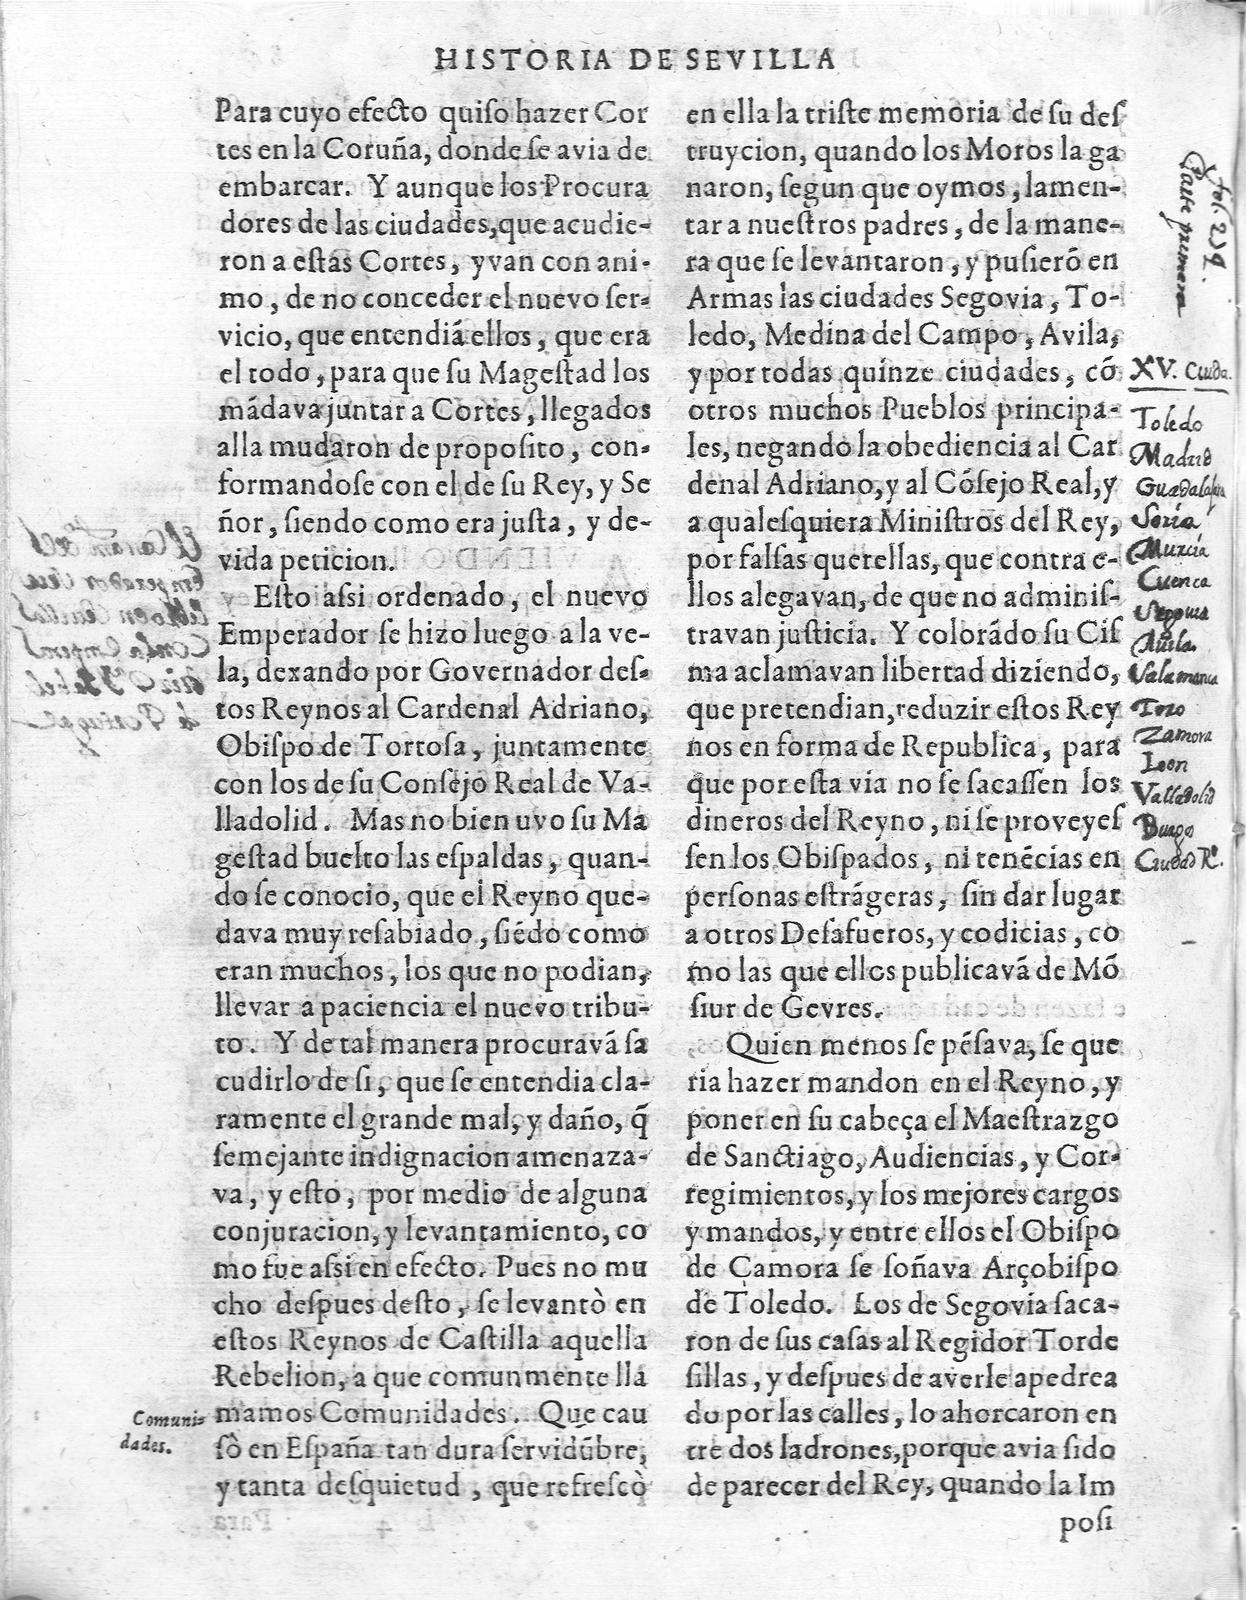 HISTORIA DE SEVILLA
Para cuyo efecto quiſo hazer Cor
tes en la Coruña, donde ſe avia de
embarcar. Y aunque los Procura
dores de las ciudades, que acudie-
ron a eſtas Cortes, yvan con ani-
mo, de no conceder el nuevo ſer-
vicio, que entendiã ellos, que era
el todo, para que ſu Mageſtad los
mãdava juntar a Cortes, llegados
alla mudaron de propoſito, con-
formandoſe con el de ſu Rey, y Se
ñor, ſiendo como era juſta, y de-
vida peticion.
Eſto aſsi ordenado, el nuevo
Emperador ſe hizo luego a la ve-
la, dexando por Governador deſ-
tos Reynos al Cardenal Adriano,
Obiſpo de Tortoſa, juntamente
con los de ſu Conſejo Real de Va-
lladolid. Mas no bien uvo ſu Ma
geſtad buelto las eſpaldas, quan-
do ſe conocio, que el Reyno que-
dava muy reſabiado, ſiẽdo como
eran muchos, los que no podian,
llevar a paciencia el nuevo tribu-
to. Y de tal manera procuravã ſa
cudirlo de ſi, que ſe entendia cla-
ramente el grande mal, y daño, q̃
ſemejante indignacion amenaza-
va, y eſto, por medio de alguna
conjuracion, y levantamiento, co
mo fue aſsi en efecto. Pues no mu
cho deſpues deſto, ſe levantò en
eſtos Reynos de Caſtilla aquella
Rebelion, a que comunmente lla
mamos Comunidades. Que cau
ſò en Eſpaña tan dura ſervidũbre,
y tanta deſquietud, que refreſcò
Comuni-
dades.
en ella la triſte memoria de ſu deſ
truycion, quando los Moros la ga
naron, ſegun que oymos, lamen-
tar a nueſtros padres, de la mane-
ra que ſe levantaron, y puſierõ en
Armas las ciudades Segovia, To-
ledo, Medina del Campo, Avila,
y por todas quinze ciudades, cõ
otros muchos Pueblos principa-
les, negando la obediencia al Car
denal Adriano, y al Cõſejo Real, y
a qualeſquiera Miniſtros del Rey,
por falſas querellas, que contra e-
llos alegavan, de que no adminiſ-
travan juſticia. Y colorãdo ſu Ciſ
ma aclamavan libertad diziendo,
que pretendian, reduzir eſtos Rey
nos en forma de Republica, para
que por eſta via no ſe ſacaſſen los
dineros del Reyno, ni ſe proveyeſ
ſen los Obiſpados, ni tenẽcias en
perſonas eſtrãgeras, ſin dar lugar
a otros Deſafueros, y codicias, co
mo las que ellos publicavã de Mõ
ſiur de Gevres.
Quien menos ſe pẽſava, ſe que
ria hazer mandon en el Reyno, y
poner en ſu cabeça el Maeſtrazgo
de Sanctiago, Audiencias, y Cor-
regimientos, y los mejores cargos
y mandos, y entre ellos el Obiſpo
de Çamora ſe ſoñava Arçobiſpo
de Toledo. Los de Segovia ſaca-
ron de ſus caſas al Regidor Torde
ſillas, y deſpues de averle apedrea
do por las calles, lo ahorcaron en
tre dos ladrones, porque avia ſido
de parecer del Rey, quando la Im
poſi
fol. 239.
Parte primera
XV. Ciuda.
Toledo
Madrid
Guadalajara
Soria
Murcia
Cuenca
Segouia
Auila.
Salamanca
Toro
Zamora
Leon
Valladolid
Burgo
Ciudad Rl.